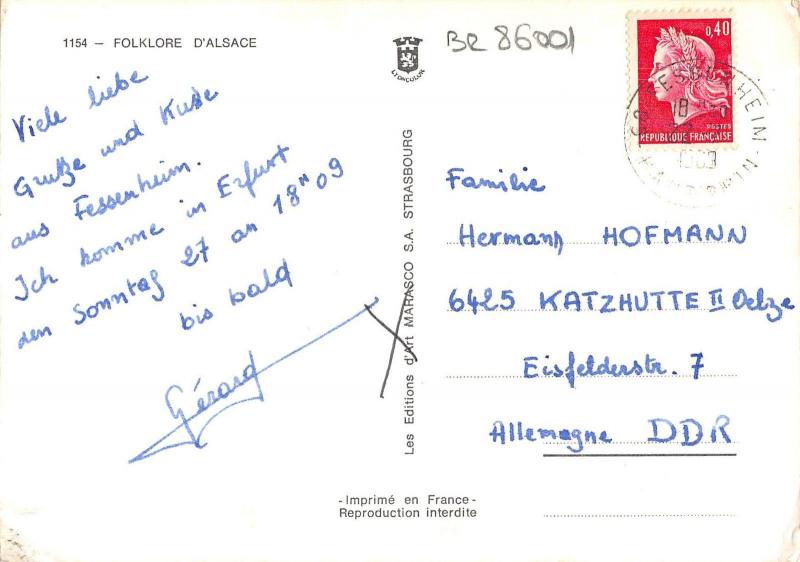 1154 - FOLKLORE D'ALSACE
LYONCOLOR
BR 86001
0,40
POSTES
REPUBLIQUE FRANÇAISE
68 FESSENHEIM
18 H
HAUT-RHIN
Viele liebe
Grutze und Kusse
aus Fessenheim.
Ich komme in Erfurt
den Sonntag 27 an 18H09
bis bald
Gérard
Les Editions d'Art MARASCO S.A. STRASBOURG
Familie
Hermann HOFMANN
6425 KATZHUTTE II Oelze
Eisfelderstr. 7
Allemagne DDR
-Imprimé en France-
Reproduction interdite